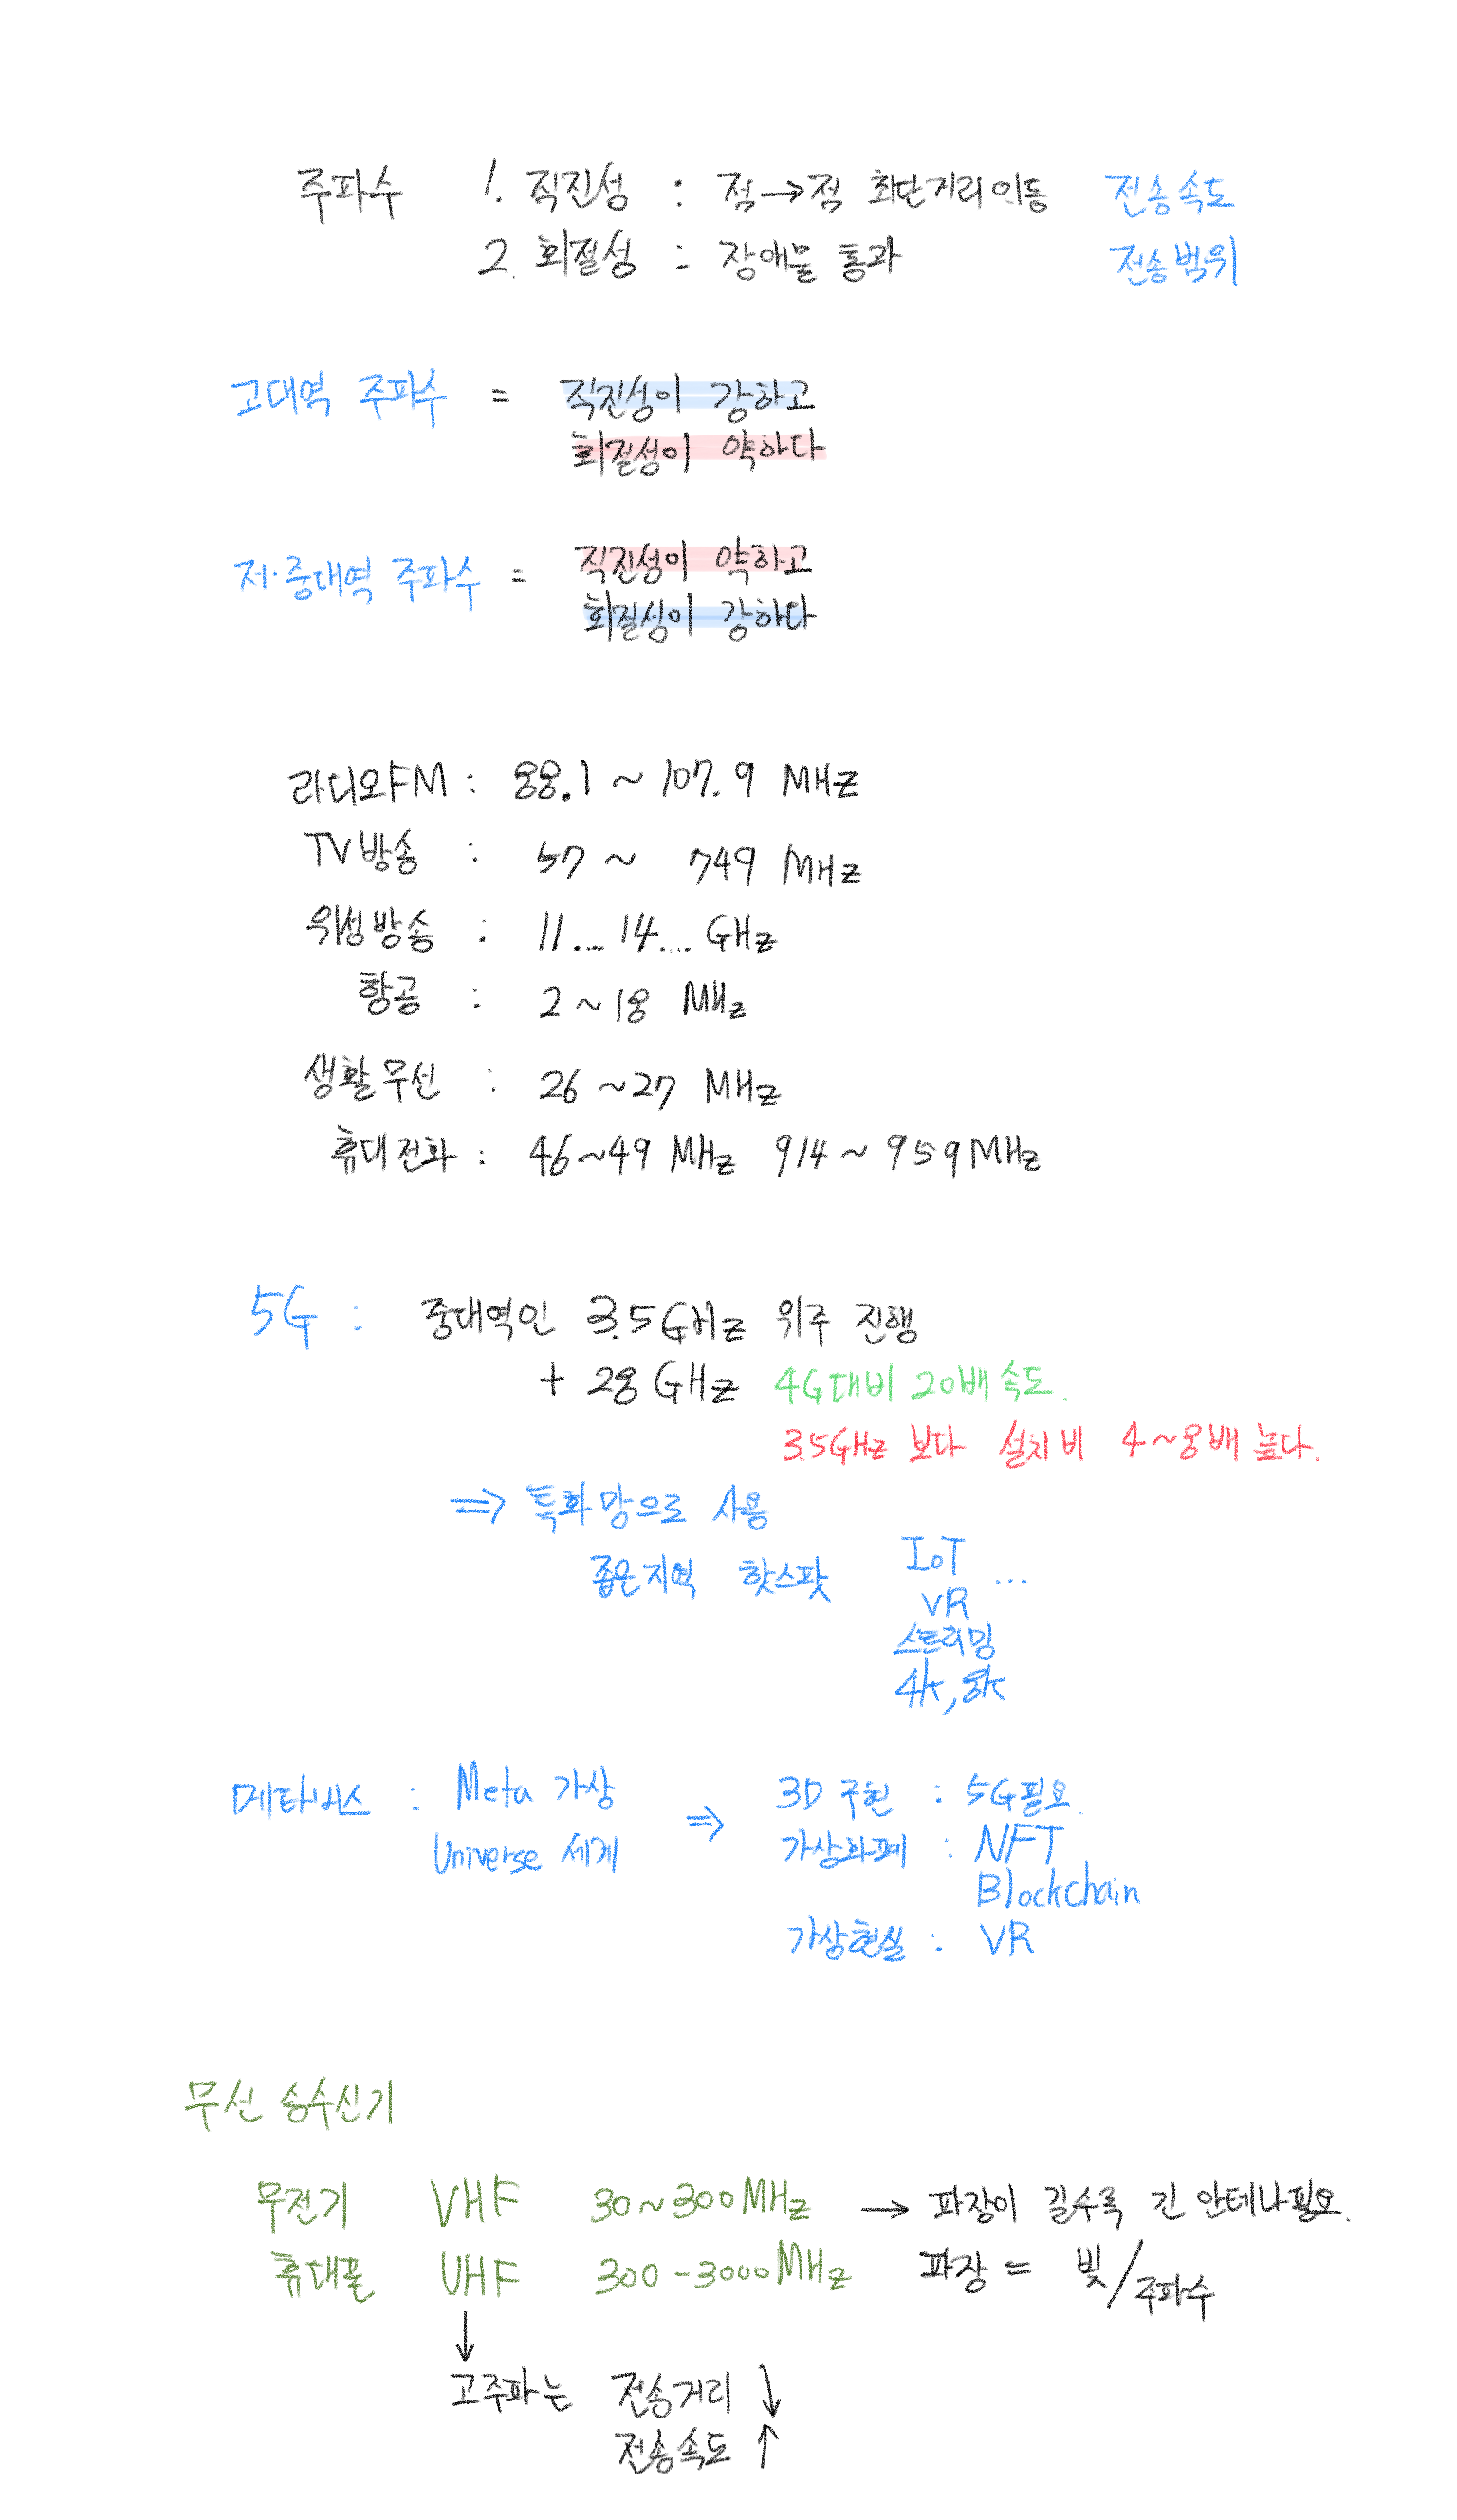 주파수 1. 직진성 : 점→점 최단거리 이동 전송속도
2. 회절성 : 장애물 통과 전송범위
고대역 주파수 = 직진성이 강하고
회절성이 약하다
저·중대역 주파수 = 직진성이 약하고
회절성이 강하다
라디오FM : 88.1 ~ 107.9 MHz
TV방송 : 57 ~ 749 MHz
위성방송 : 11... 14... GHz
항공 : 2 ~ 18 MHz
생활무선 : 26 ~ 27 MHz
휴대전화 : 46~49 MHz 914 ~ 959MHz
5G : 중대역인 3.5GHz 위주 진행
+ 28 GHz 4G대비 20배 속도.
3.5GHz 보다 설치비 4~8배 높다.
⇒ 특화망으로 사용
좁은지역 핫스팟 IoT ...
VR
스트리밍
4k, 8k
메타버스 : Meta 가상 ⇒ 3D 구현 : 5G필요.
Universe 세계 가상화폐 : NFT
Blockchain
가상현실 : VR
무선 송수신기
무전기 VHF 30~300MHz → 파장이 길수록 긴 안테나필요.
휴대폰 UHF 300-3000MHz 파장 = 빛/주파수
↓
고주파는 전송거리 ↓
전송속도 ↑